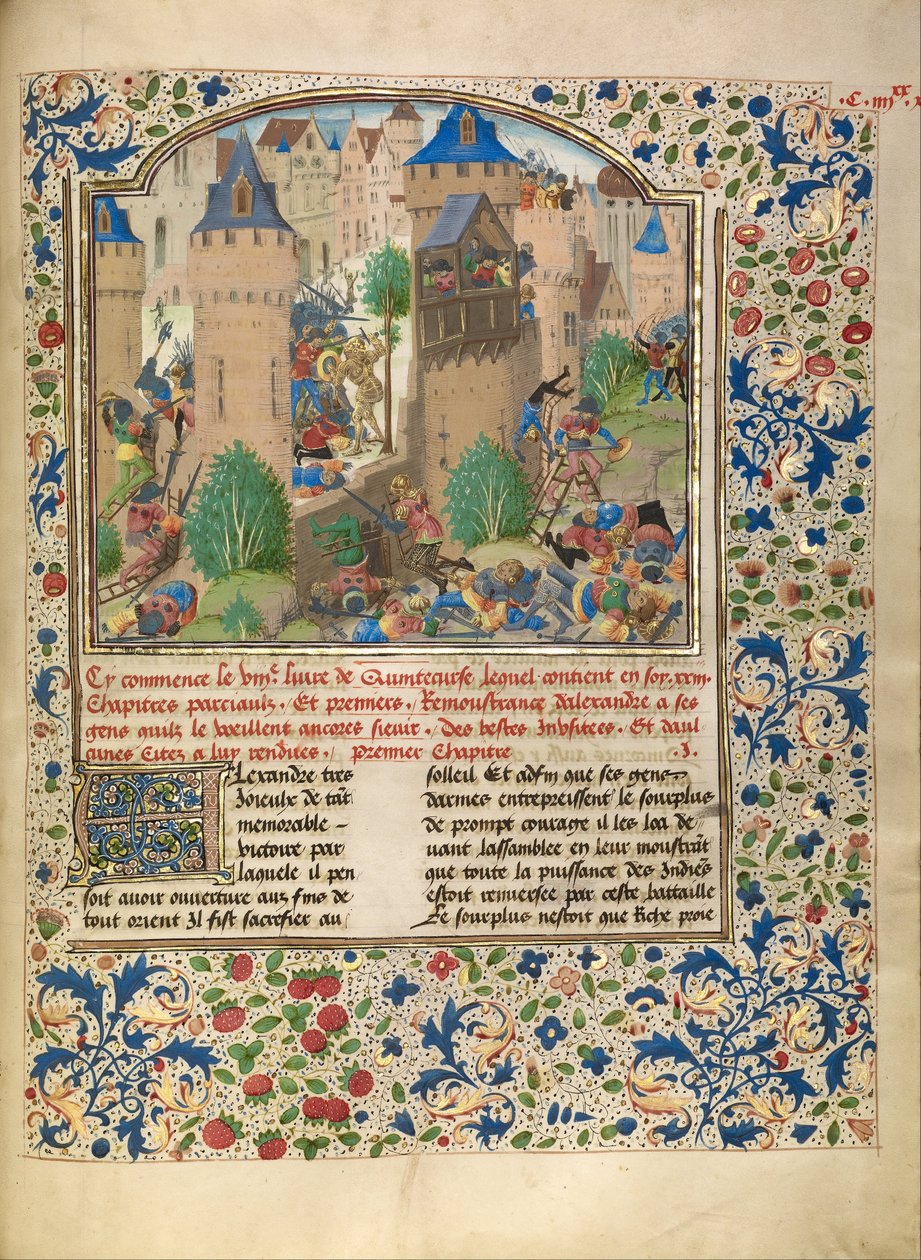 .C. iiij xx x
Cy commence le viije. livre de Quintecurse lequel contient en soy .xxiii.
Chapitres parciaulx ./ Et premiers ./ Remoustrance dalexandre a ses
gens quilz le veillent ancores sievir ./ Des bestes Invsitees. Et daul
cunes Citez a luy rendues ./ premier Chapitre .I.
Alexandre tres
Joieulx de tant
memorable –
victoire par
laquele il pen
soit avoir ouverture aux fins de
tout orient Il fist sacrefier au
solleil Et adfin que ses gens
darmes entrepreissent le sourplus
de prompt courage il les loa de
vant lassamblee en leur moustrant
que toute la puissance des Indiens
estoit renversee par ceste battaille
Le sourplus nestoit que Riche proie